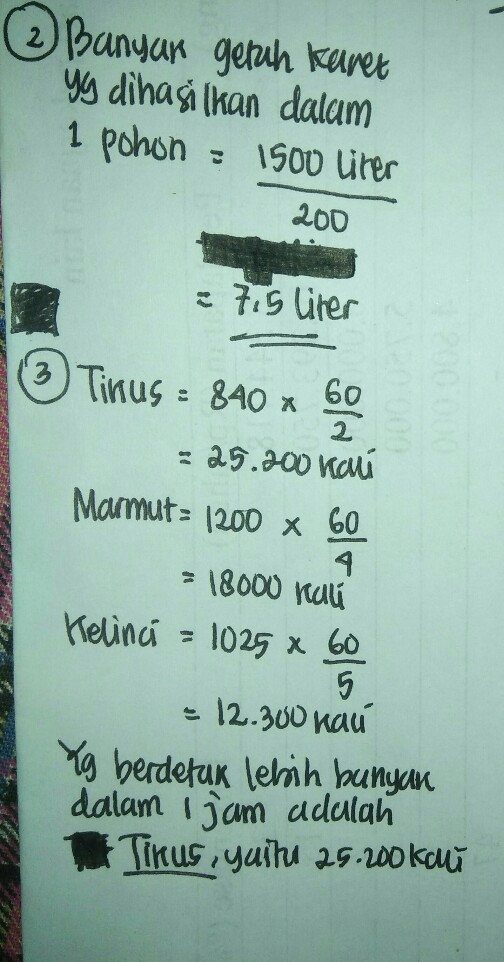 2 Banyak getah karet
yg dihasilkan dalam
1 pohon = 1500 liter
200
= 7,5 liter
3 Tikus = 840 x 60
2
= 25.200 kali
Marmut = 1200 x 60
4
= 18000 kali
Kelinci = 1025 x 60
5
= 12.300 kali
Yg berdetak lebih banyak
dalam 1 jam adalah
Tikus, yaitu 25.200 kali